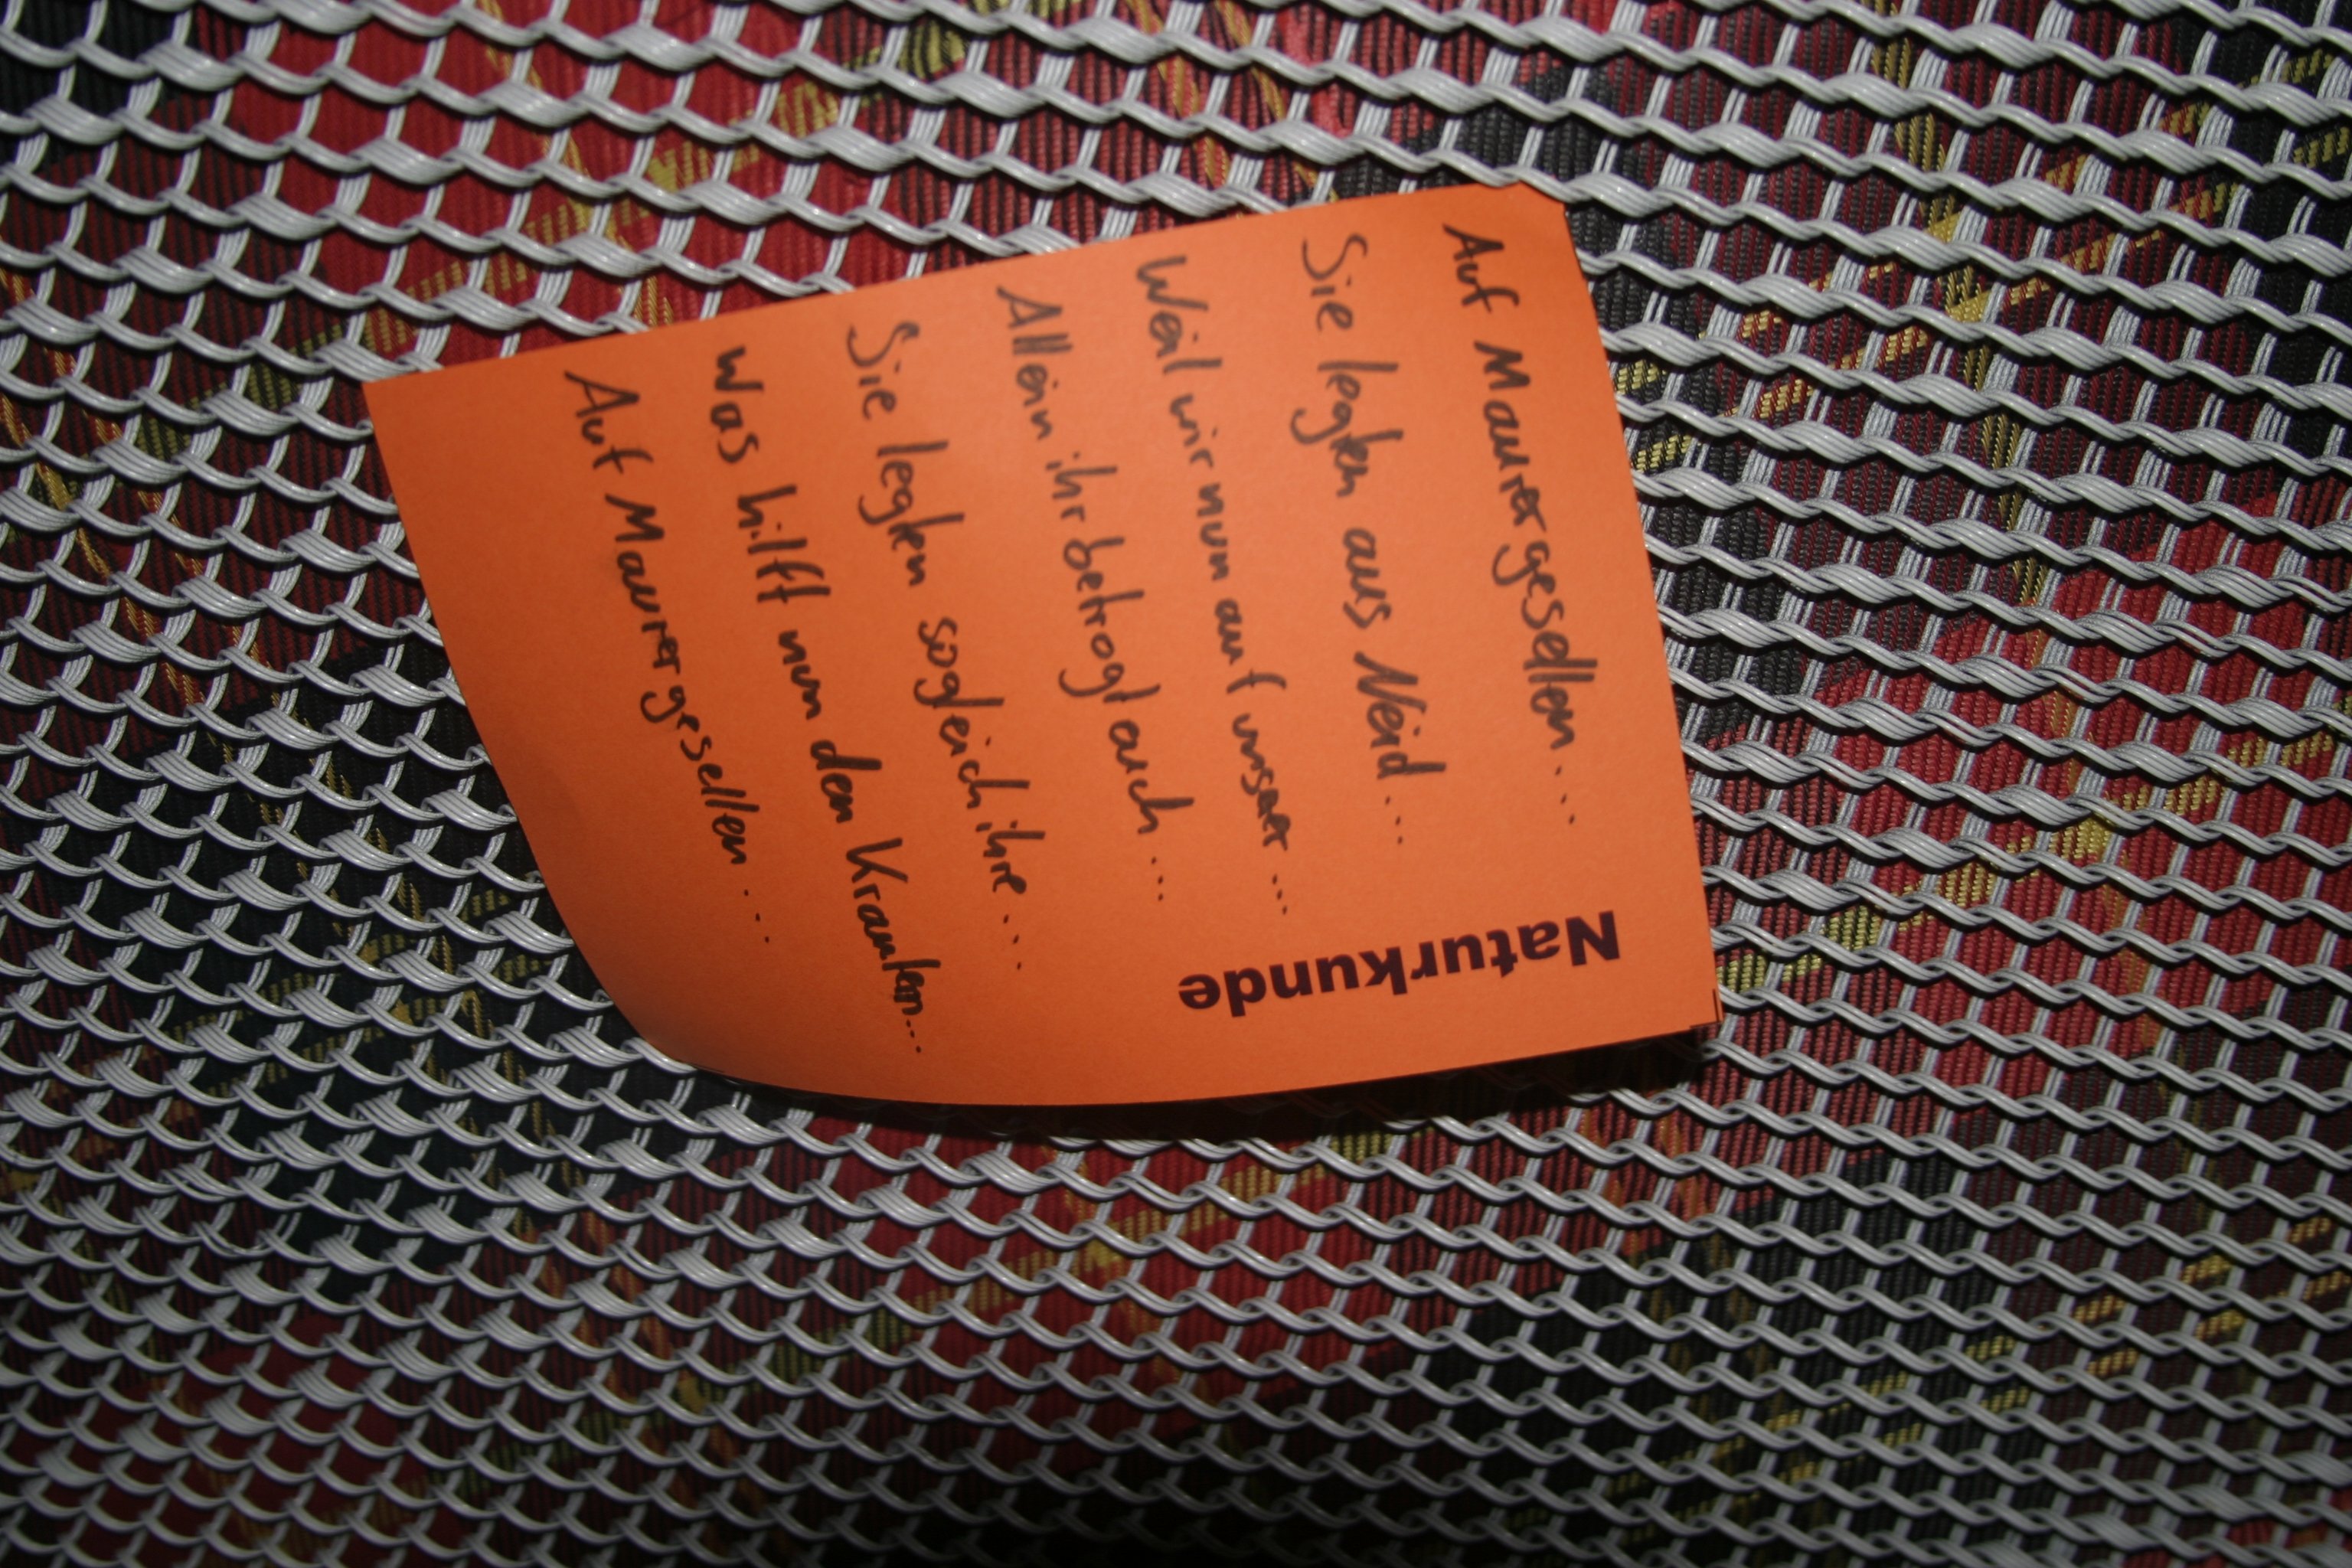 Auf Maurergesellen...
Sie legten aus Neid...
Weil wir nun auf unser...
Allein ihr betrogt auch...
Sie legten sogleich ihre...
Was hilft nun den Kranken...
Auf Maurergesellen...
Naturkunde